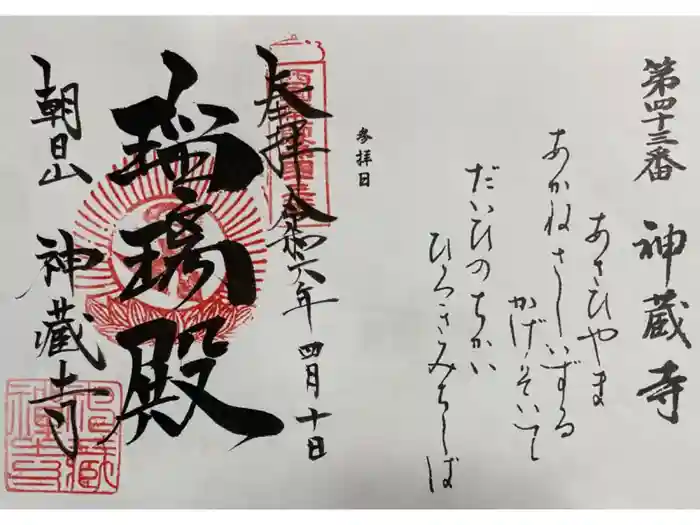 第四十三番 神蔵寺
あさひやま
あかねさしいずる
かげ
だいひのちかい
ひろさみちしば
参拝日
奉拝 令和六年四月十日
瑠璃殿
朝日山 神蔵寺